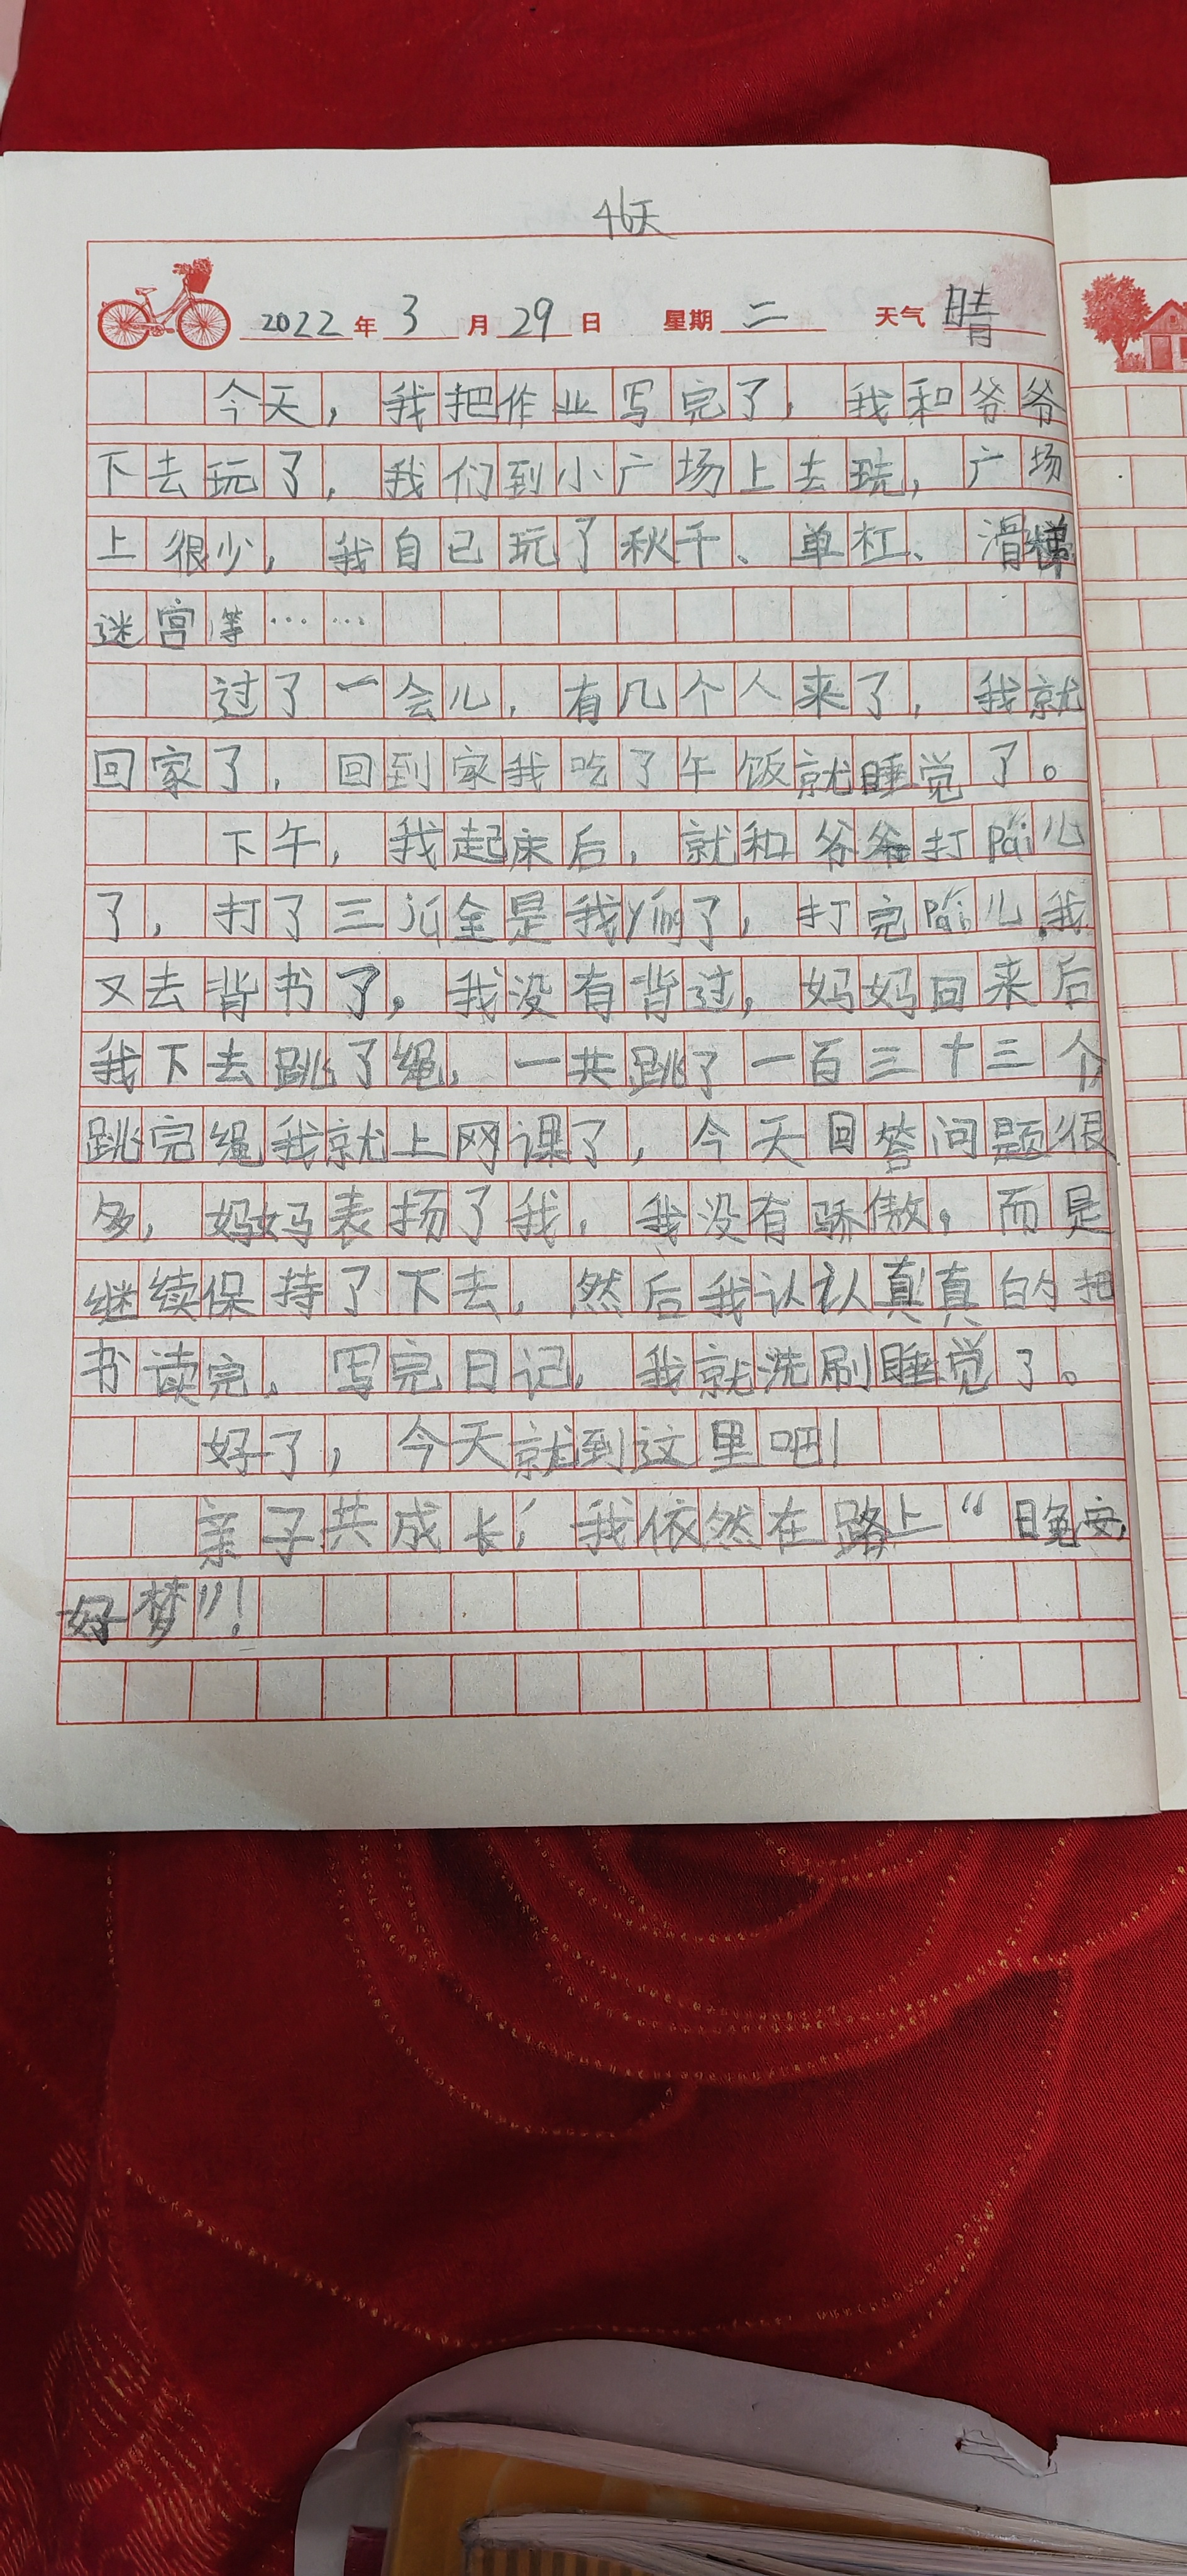 46天
2022年 3月 29日 星期二 天气晴
今天，我把作业写完了，我和爷爷
下去玩了，我们到小广场上去玩，广场
上很少，我自己玩了秋千、单杠、滑梯
迷宫等……
过了一会儿，有几个人来了，我就
回家了，回到家我吃了午饭就睡觉了。
下午，我起床后，就和爷爷打pái儿
了，打了三jú全是我yíng了，打完pái儿我
又去背书了，我没有背过，妈妈回来后
我下去跳了绳，一共跳了一百三十三个
跳完绳我就上网课了，今天回答问题很
多，妈妈表扬了我，我没有骄傲，而是
继续保持了下去，然后我认认真真的把
书读完，写完日记，我就洗刷睡觉了。
好了，今天就到这里吧！
亲子共成长，我依然在路上“晚安，
好梦”！